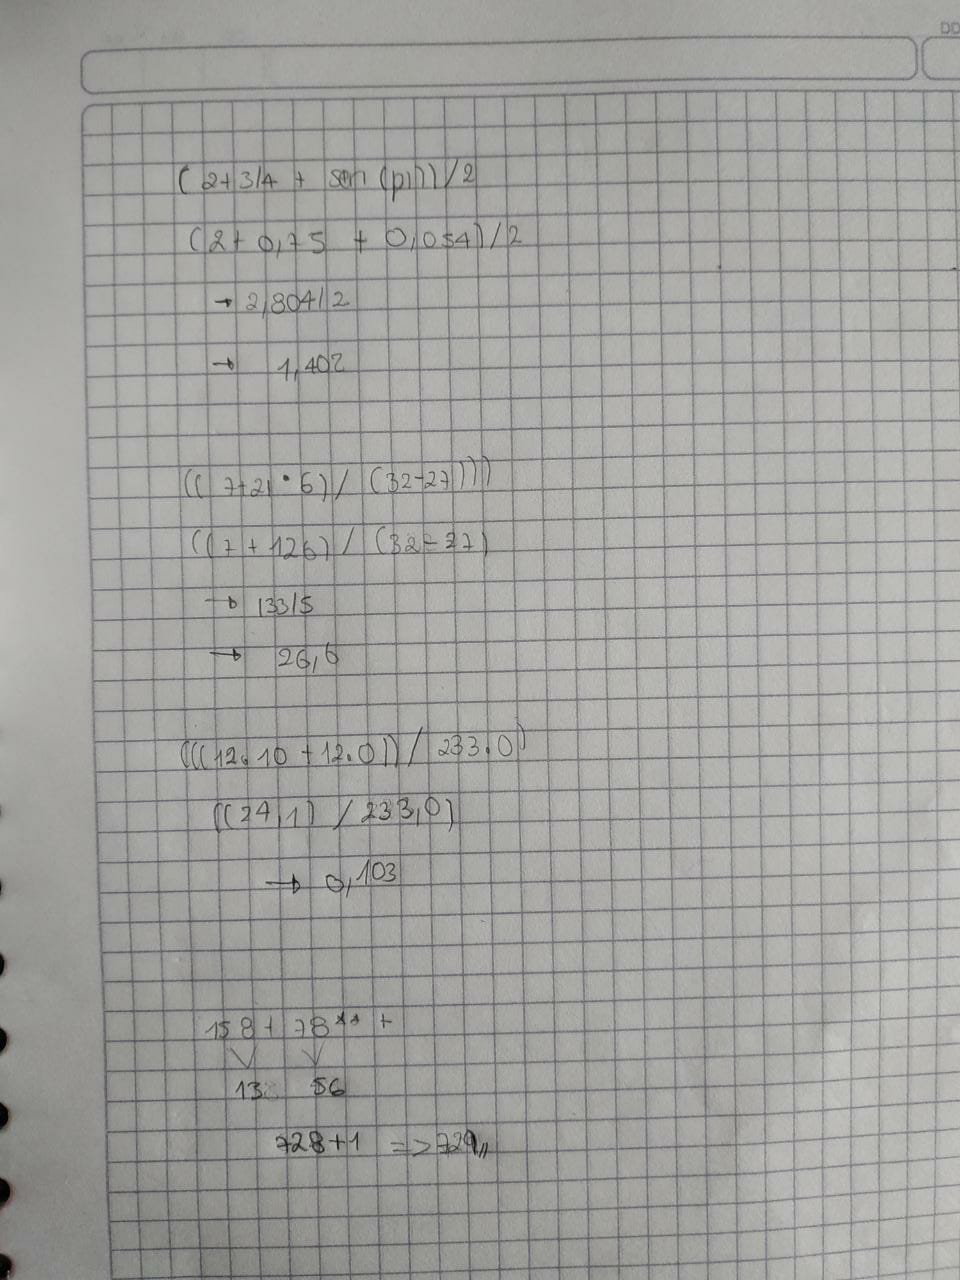 DD
( 2+3/4 + sen (pi))/2
(2+ 0,75 + 0,054)/2
→ 2,804/2
→ 1,402
(( 7+21 * 6) / (32-27))))
((7 + 126) / (32-27)
→ 133/5
→ 26,6
(((12.10 + 12.0)) / 233.0)
((24,1) / 233,0)
→ 0,103
158+ 78** +
13 56
728+1 => 729,,